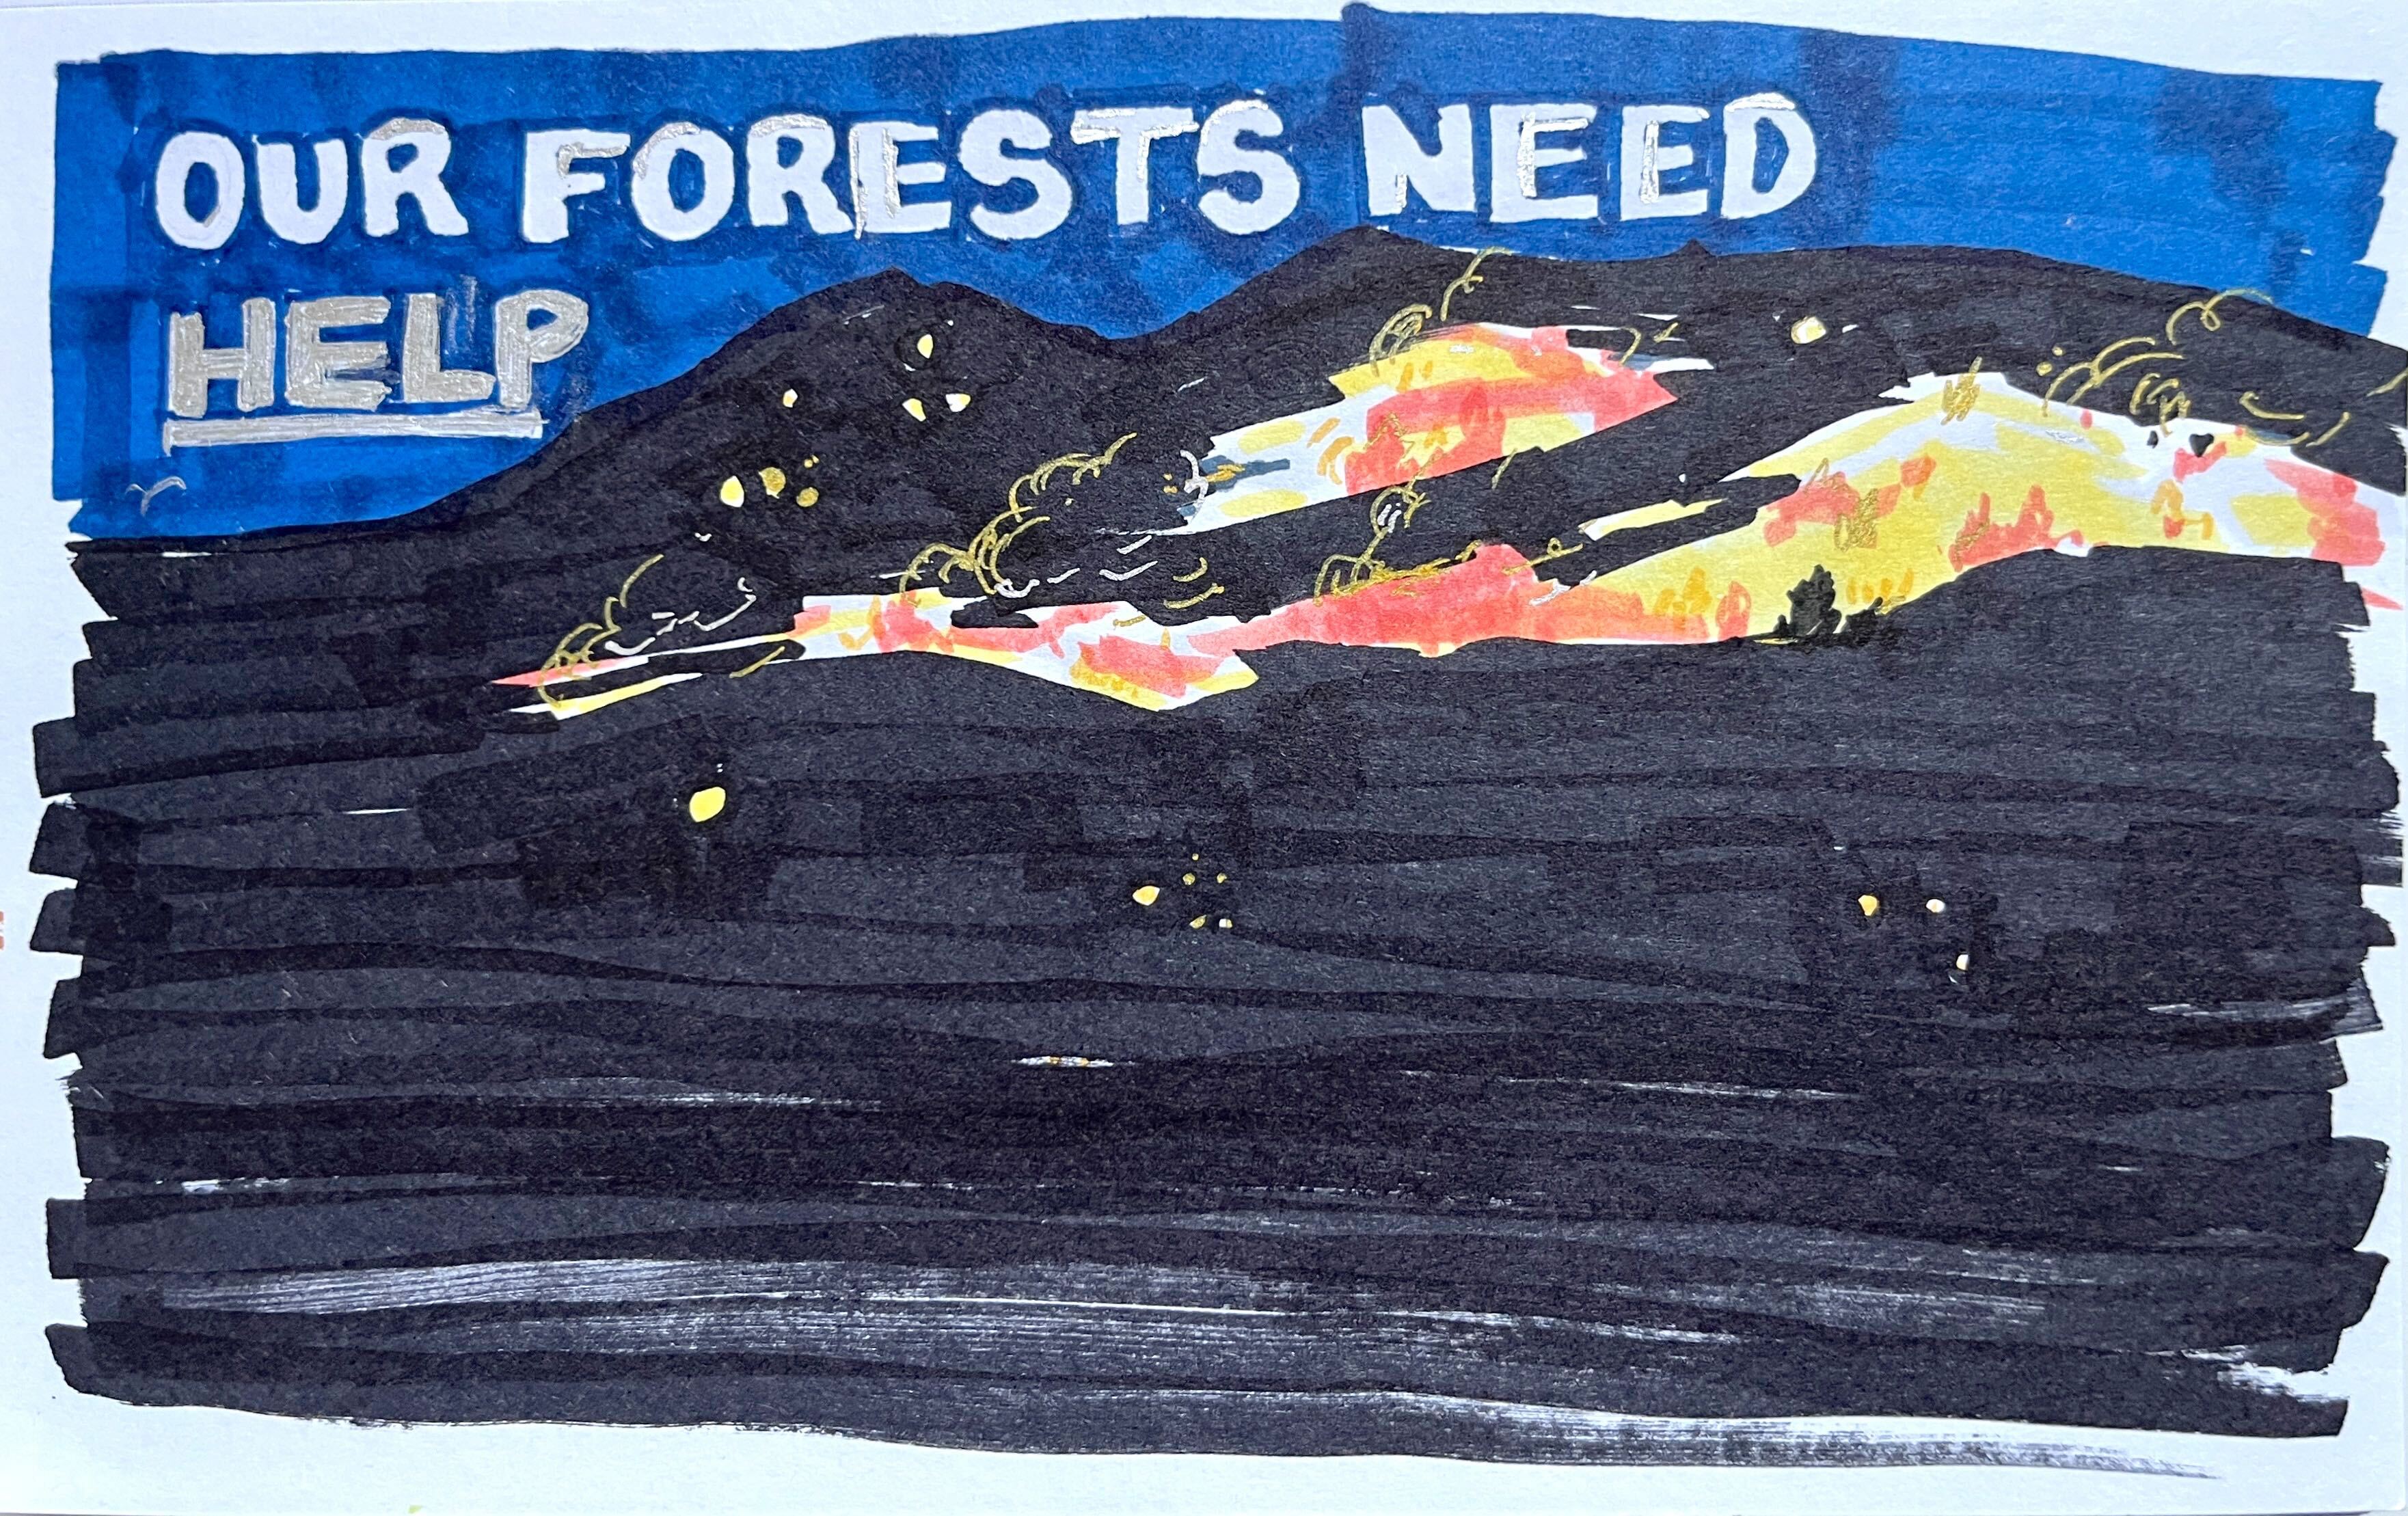 OUR FORESTS NEED
HELP